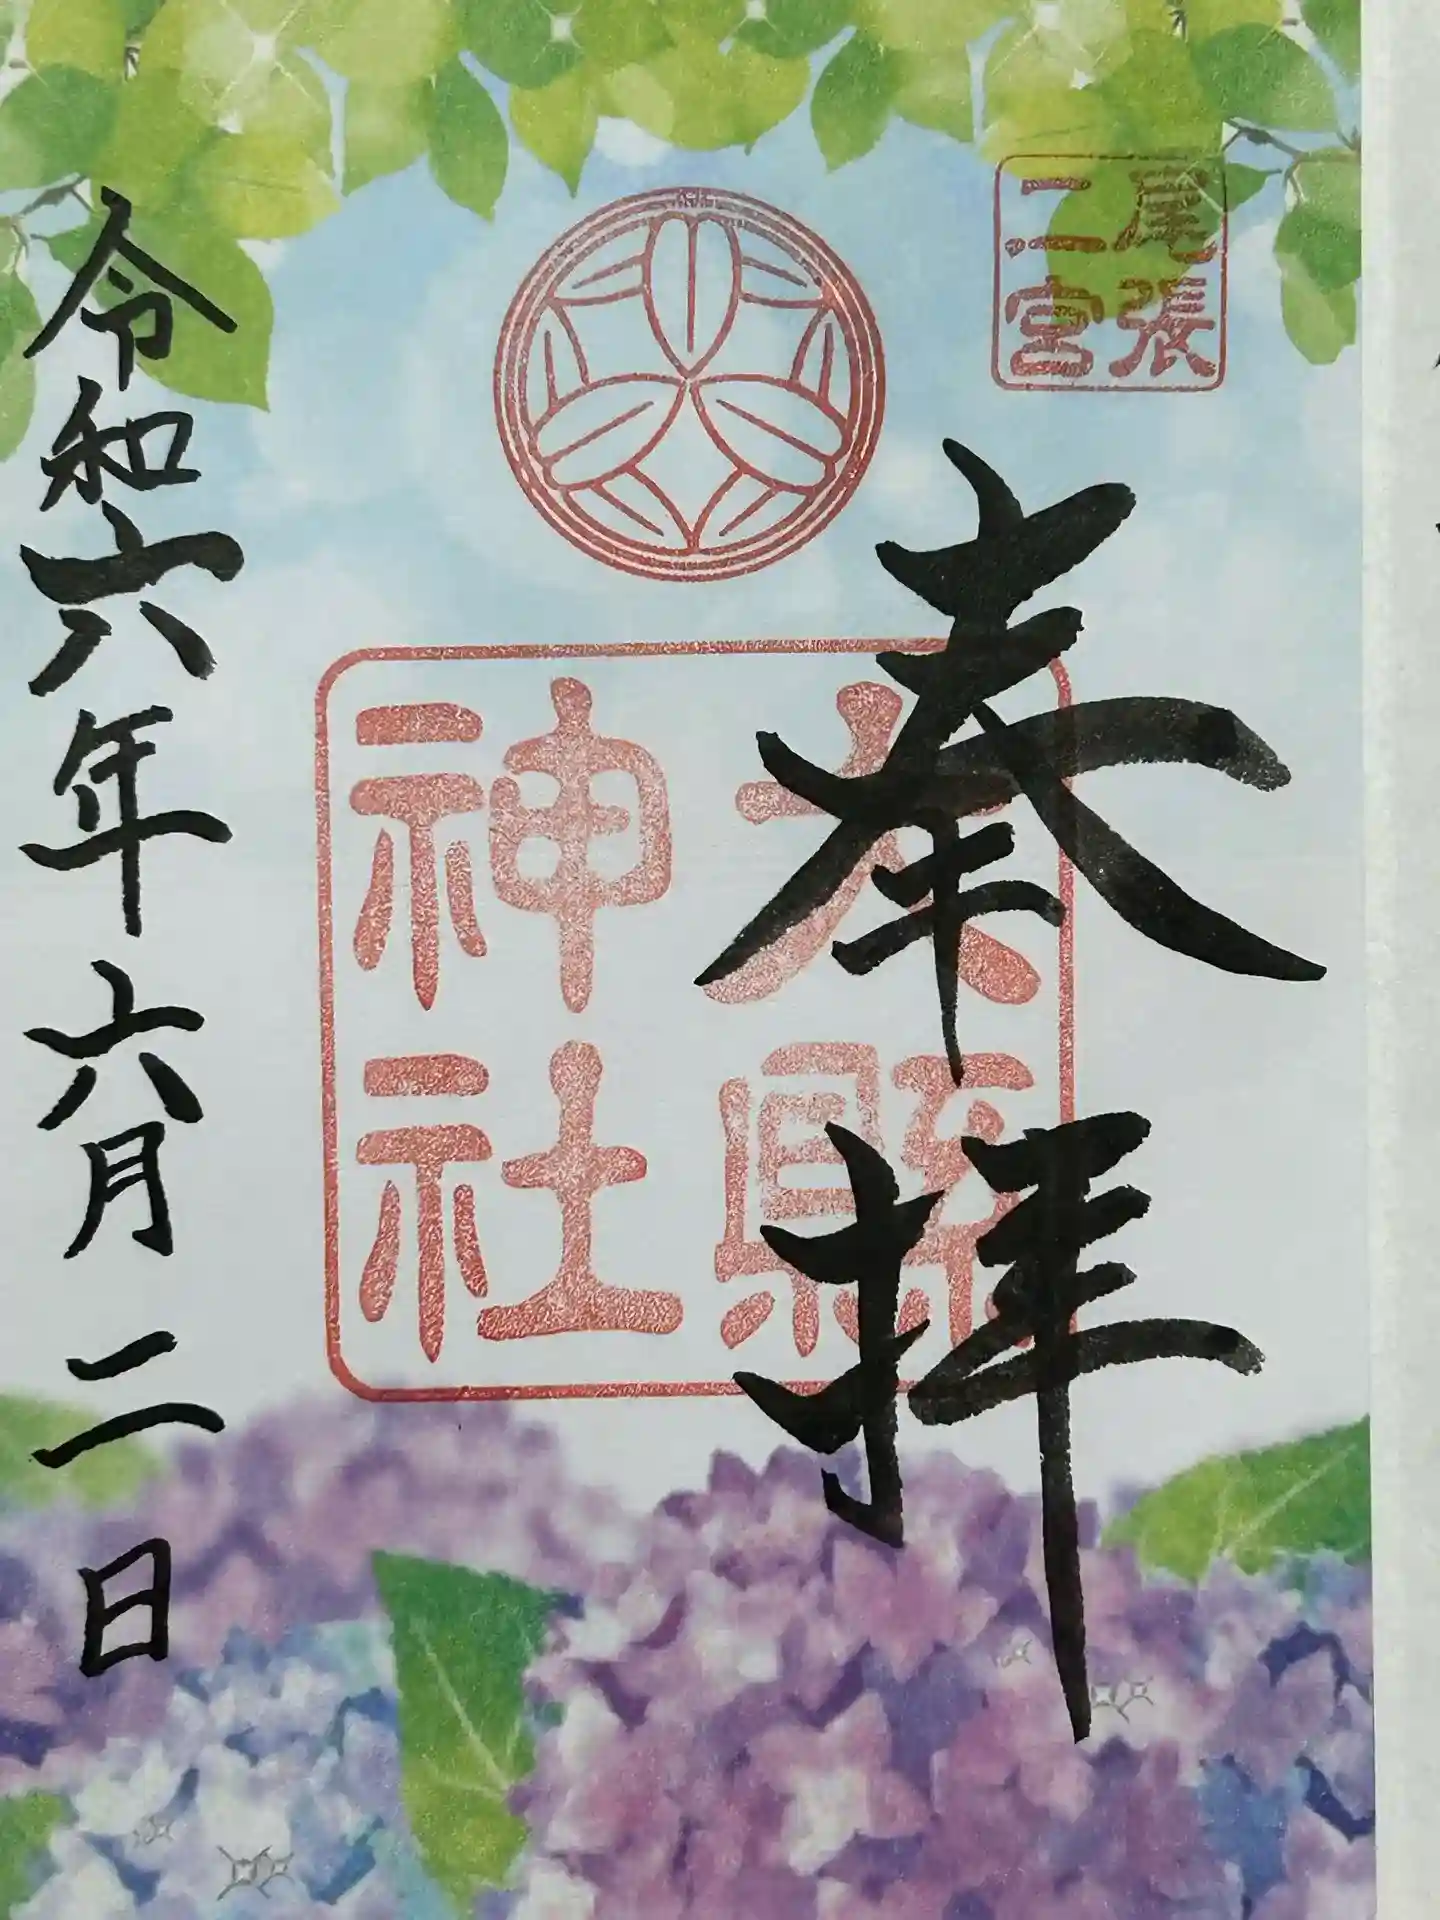 尾張
二宮
奉拝
大縣
神社
令和六年六月二日